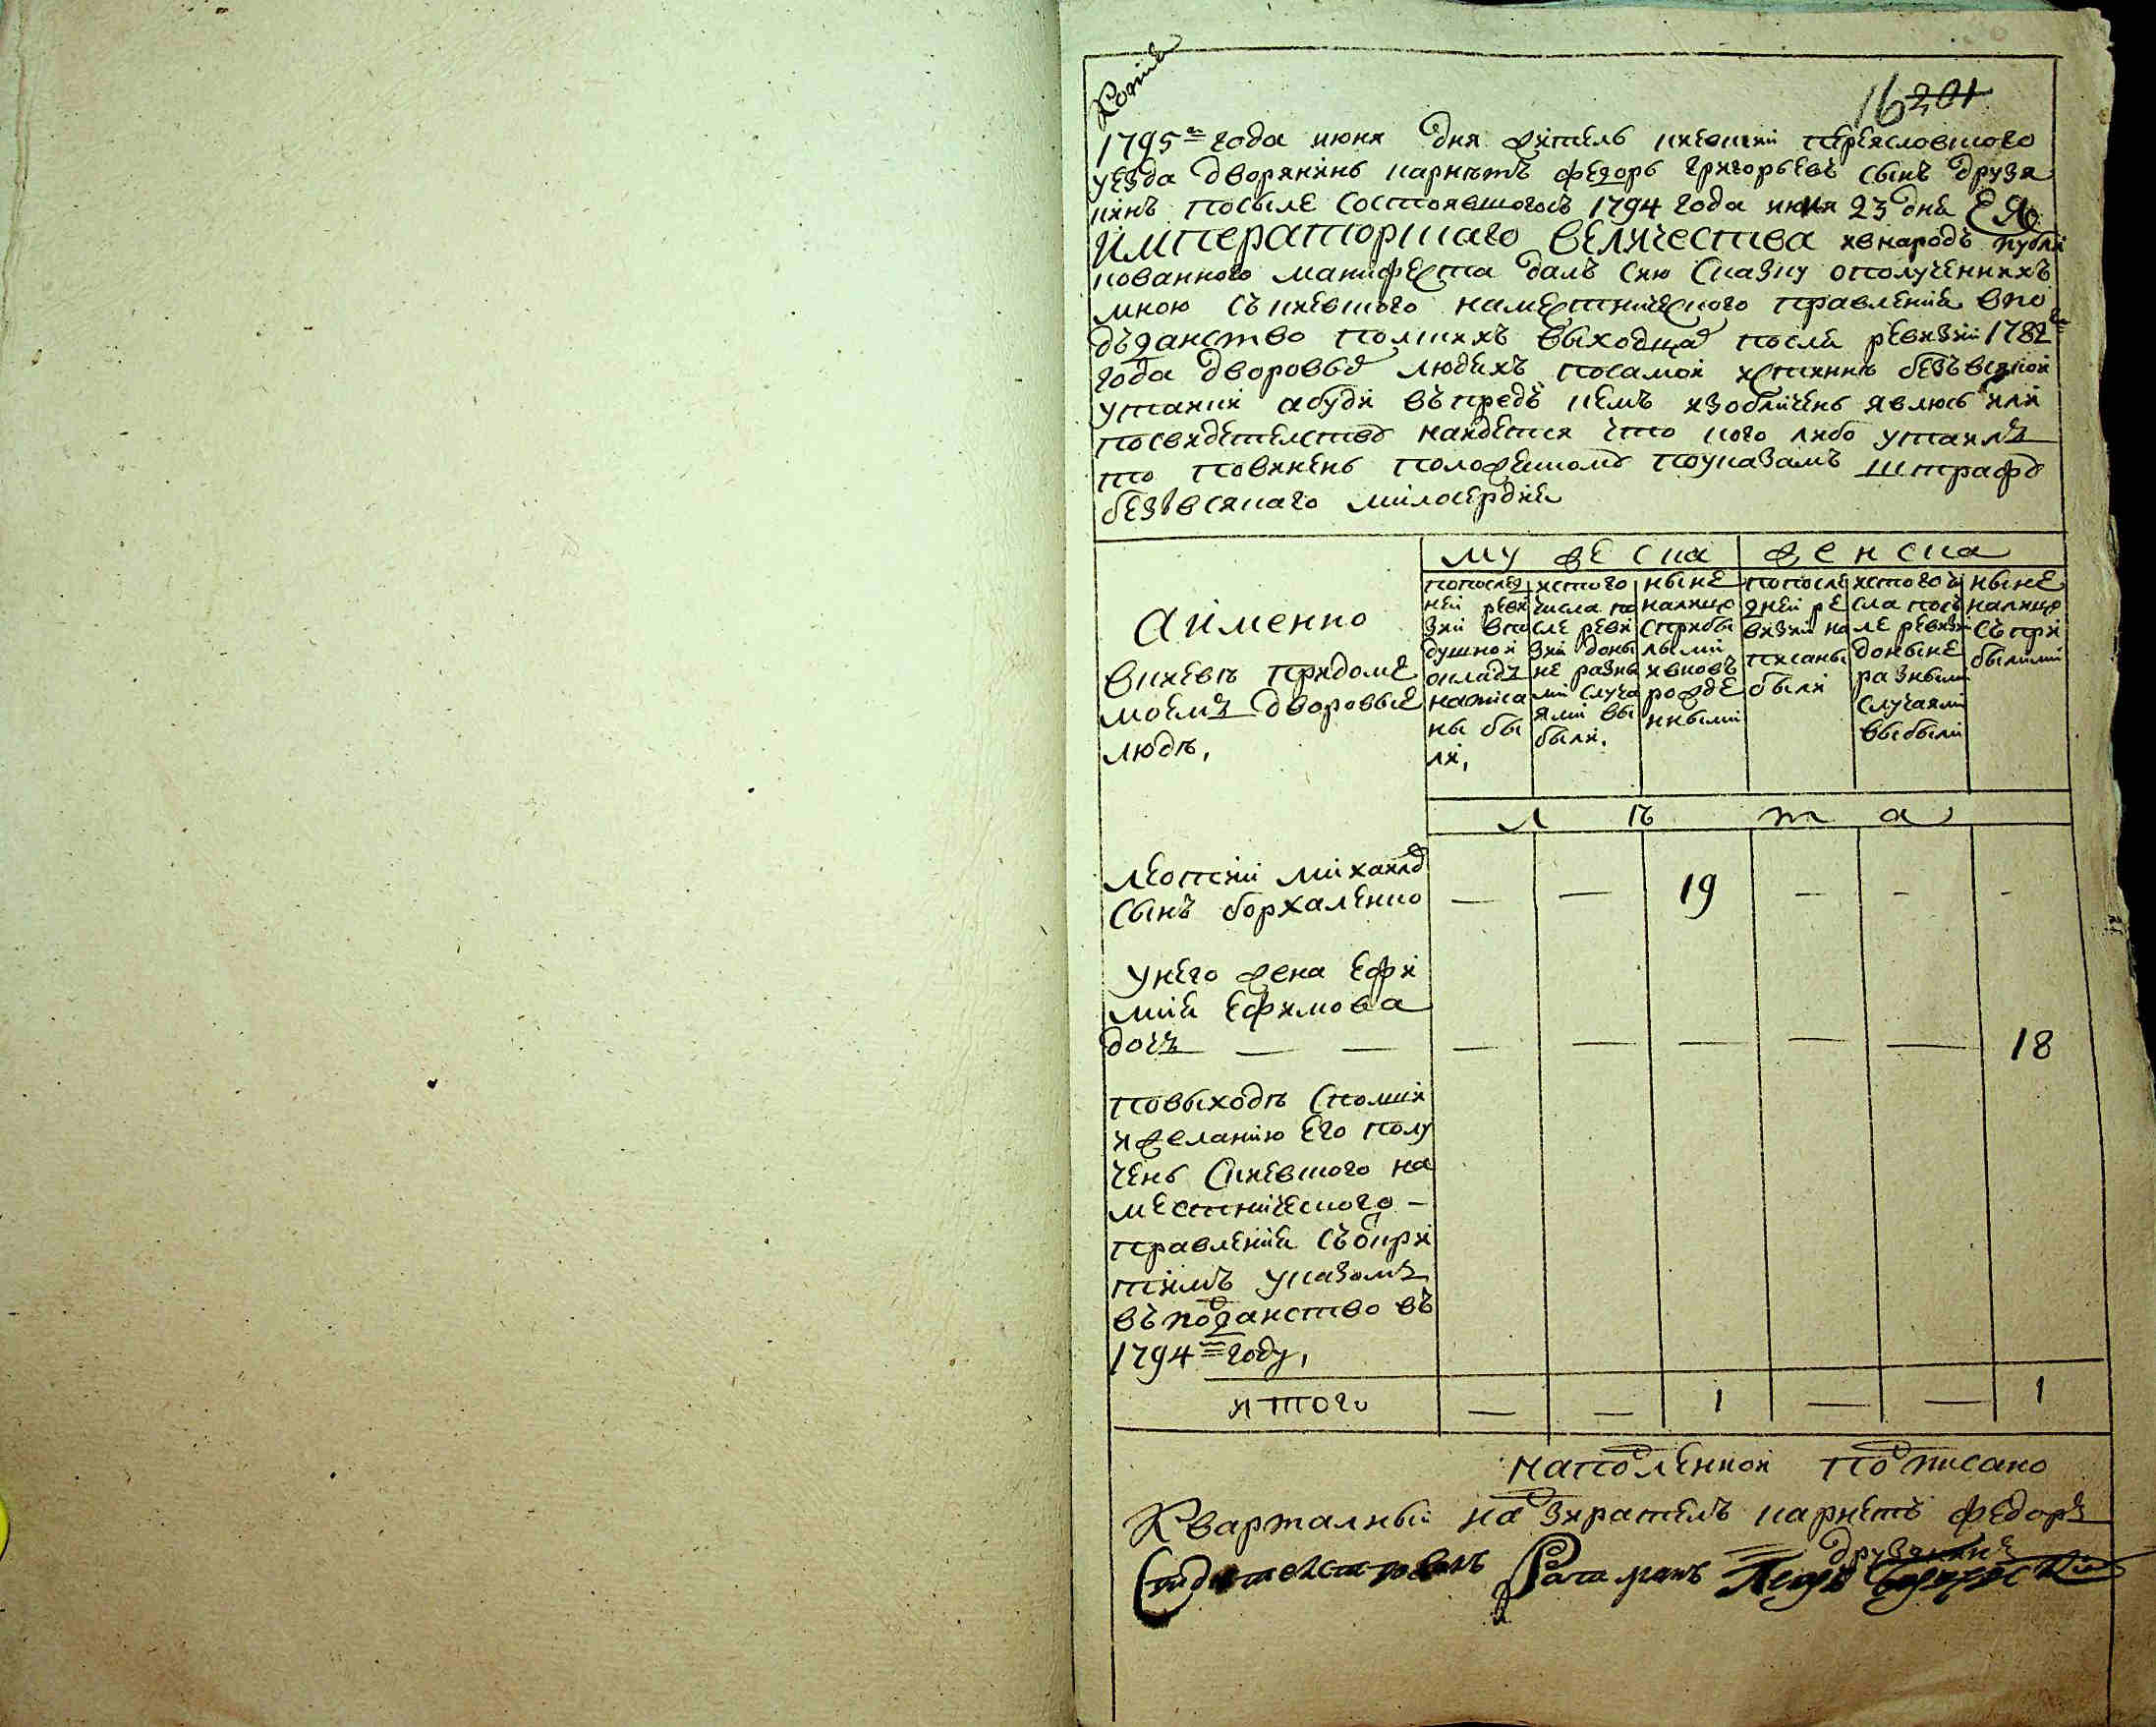 Копия
16 201
1795го года июня дня житель киевский переясловского
уезда дворянинъ карнетъ федоръ григорьевъ сынъ друзя
кинъ после состоявшогось 1794 года июня 23 дня ЕЯ
императорскаго величества внародъ публи
кованного манифеста далъ сию сказку ополученнихъ
мною съ киевского наместнического правления впо
дъданство полскихъ выходца после ревизии 1782го
года дворовых людехъ посамой истинне безъ всякой
утайки абуди въпредъ кемъ изобличенъ явлюсь или
посвидетелству найдется что кого либо утаилъ
то повиненъ положеному поуказамъ штрафу
безъ всякаго милосердия
мужеска женска
Аименно
вкиеве придоме
моемъ дворовые
люде,
попослед
ней реви
зии впо
душной
окладъ
написа
ны бы
ли,
истого
числа по
сле реви
зии доны
не разны
ми случа
ями вы
были.
ныне
налицо
сприбы
лыми
ивновъ
рожде
нными
попосле
дней ре
визии на
писаны
были
истого чи
сла посъ
ле ревизи
доныне
разными
случаями
выбыли
ныне
налицо
съпри
былими
лѣта
леонтий михайлов
сынъ борхаленко — — 19 — — -
унего жена ефи
мия ефимова
дочъ — — — — — — — 18
повыходе сполши
ижеланию его полу
ченъ скиевского на
местнического -
правления съ
указомъ
въ поданство въ
1794м году,
итого — — 1 — — 1
наподленной подписано
Кварталный надзирателъ карнетъ федоръ
друзякинъ